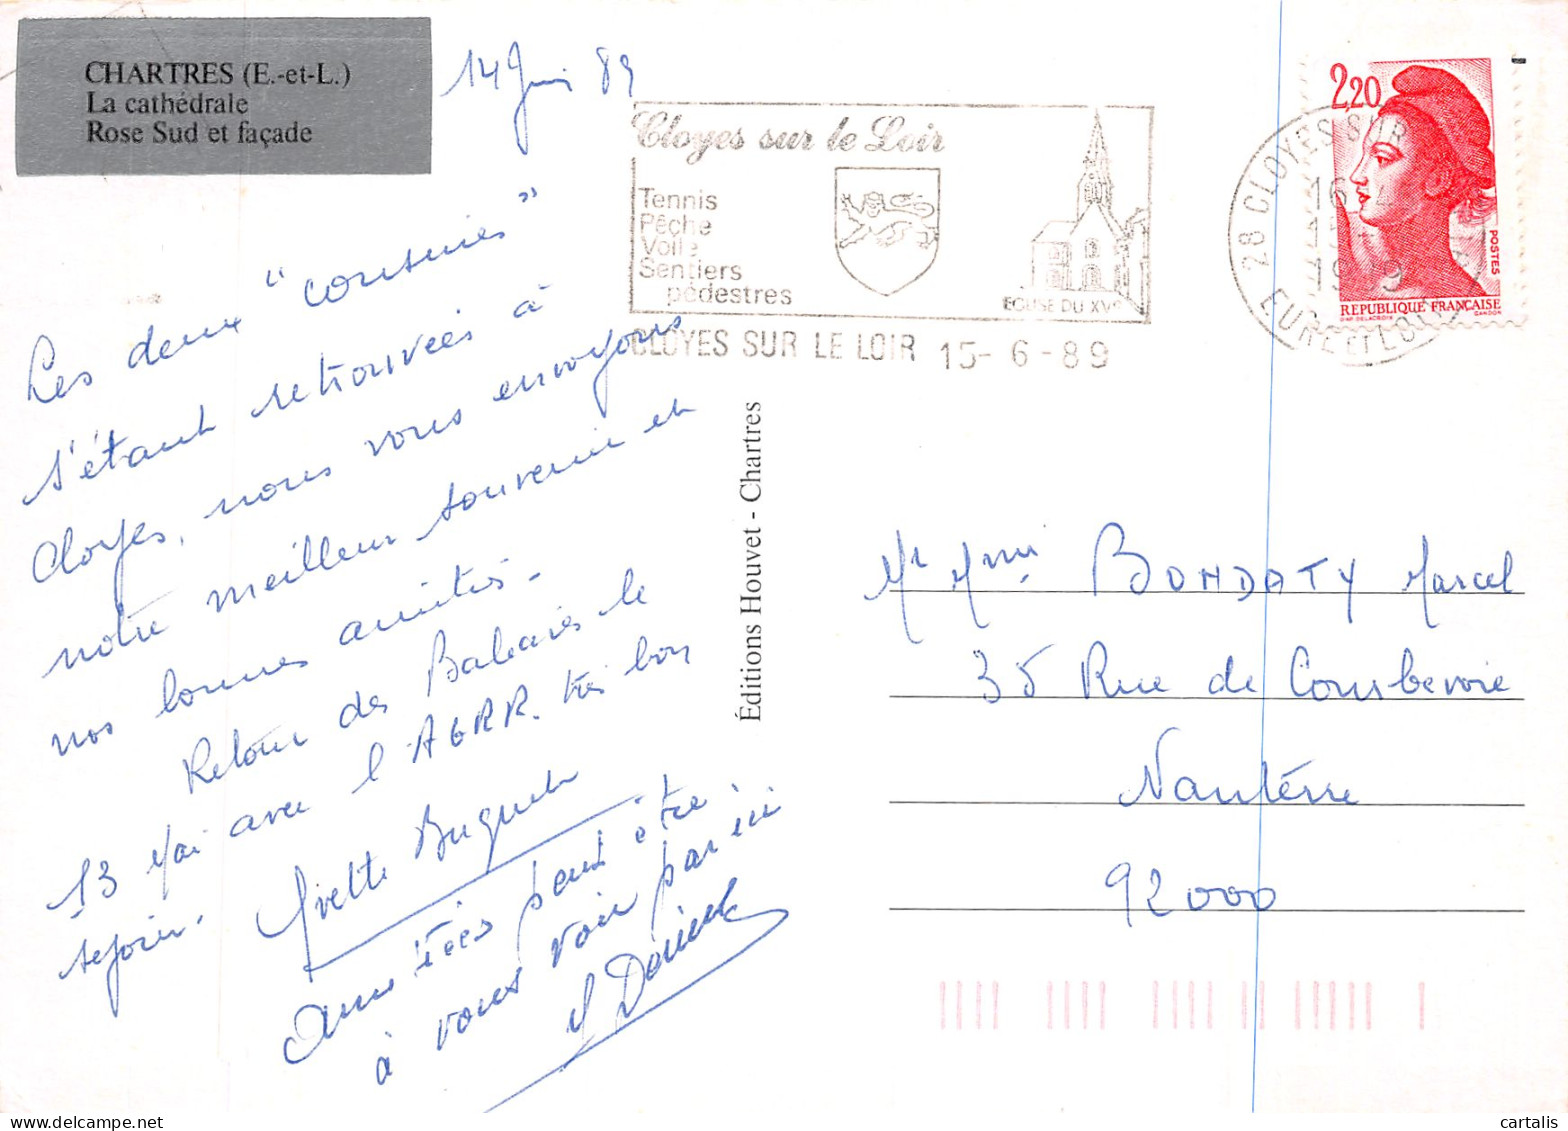 CHARTRES (E.-et-L.)
La cathédrale
Rose Sud et façade
14 Juin 89
Les deux "cousines"
s'étant retrouvées à
Cloyes, nous vous envoyons
notre meilleur souvenir et
nos bonnes amitiés -
Retour des Baleares le
13 Mai avec l'AGRR. très bon
sejour.
Yvette
Amitiés peut être
à vous voir par ici
Éditions Houvet - Chartres
Cloyes sur le Loir
Tennis
Pêche
Voile
Sentiers
pédestres
EGLISE DU XVe
CLOYES SUR LE LOIR 15-6-89
28 CLOYES SUR
EURE ET LOIR
2,20
POSTES
REPUBLIQUE FRANÇAISE
D'AP. DELACROIX GANDON
Mr Mme BONDATY Marcel
35 Rue de Courbevoie
Nanterre
92000
cartalis